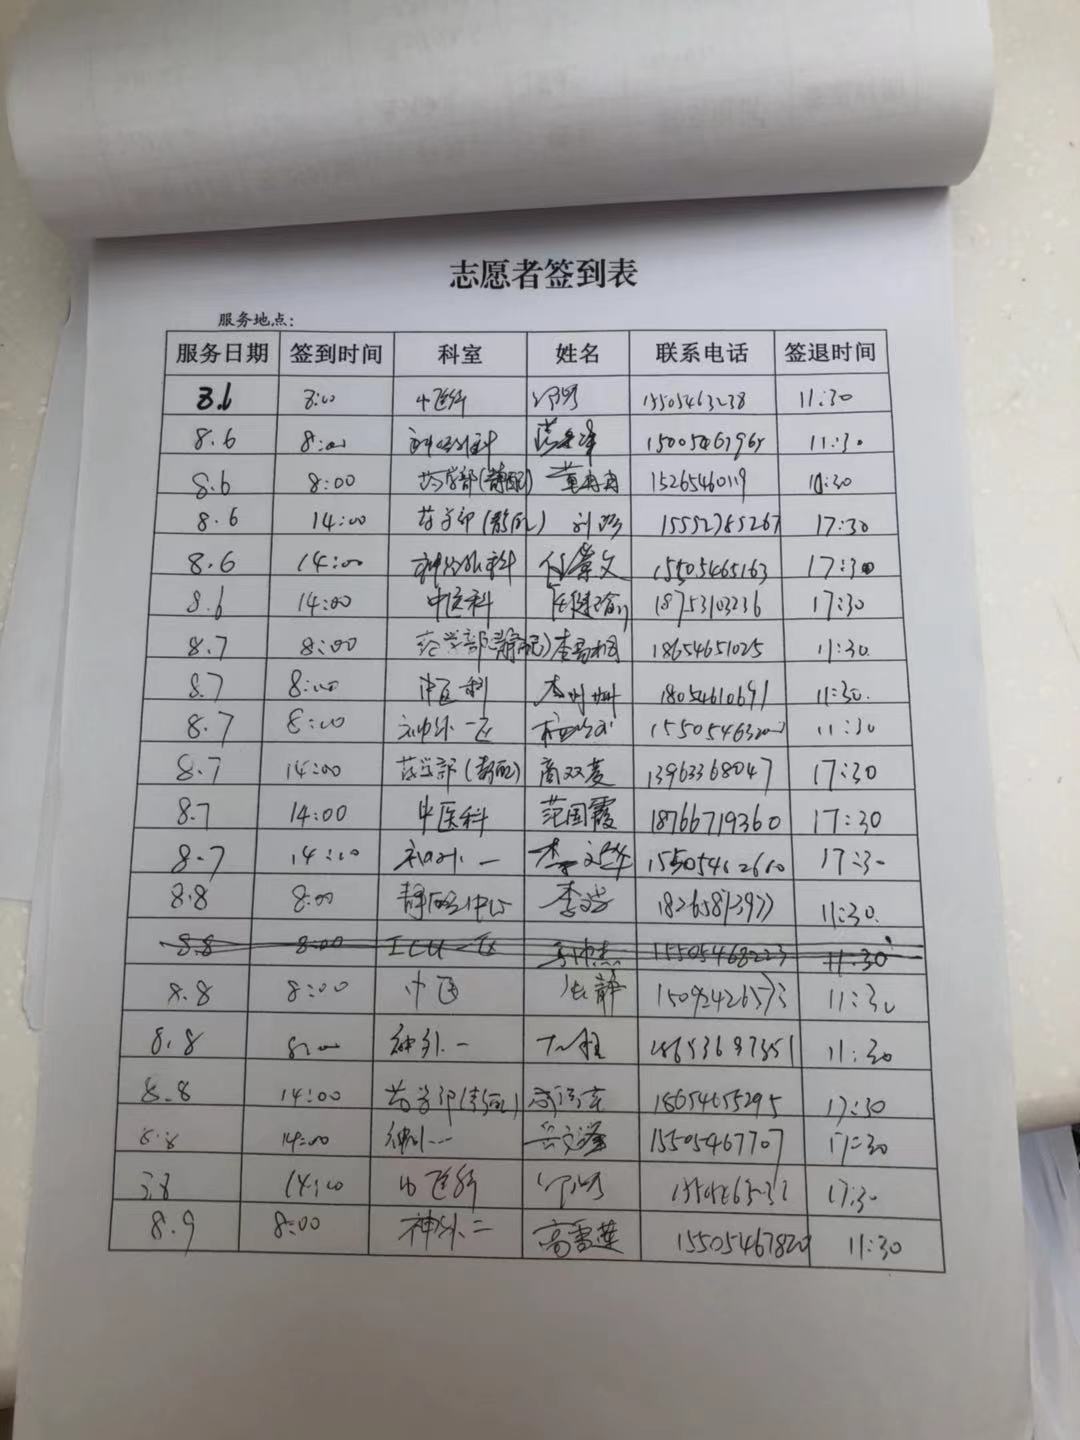 志愿者签到表
服务地点:
服务日期 签到时间 科室 姓名 联系电话 签退时间
8.6 8:00 中医科 11:30
8.6 8:00 神经外科 15005463965 11:30
8.6 8:00 药学部(静配) 董冉冉 15265460119 11:30
8.6 14:00 药学部(静配) 15552785267 17:30
8.6 14:00 神经外科 付常文 15505465163 17:30
8.6 14:00 中医科 18753103236 17:30
8.7 8:00 药学部(静配) 18654651025 11:30
8.7 8:00 中医科 18054610691 11:30.
8.7 8:00 神外一区 11:30
8.7 14:00 药学部(静配) 商双菱 13963368047 17:30
8.7 14:00 中医科 范国霞 18766719360 17:30
8.7 14:00 神外一 李文华 15505462610 17:30
8.8 8:00 静配中心 11:30.
8.8 8:00 ICU一区 15505468223 11:30
8.8 8:00 中医 张静 15092426573 11:30
8.8 8:00 神外一 11:30
8.8 14:00 药学部(静配) 18654655295 17:30
8.8 14:00 神外一 15505467707 17:30
8.8 14:00 中医科 17:30
8.9 8:00 神外二 高雪莲 15505467820 11:30